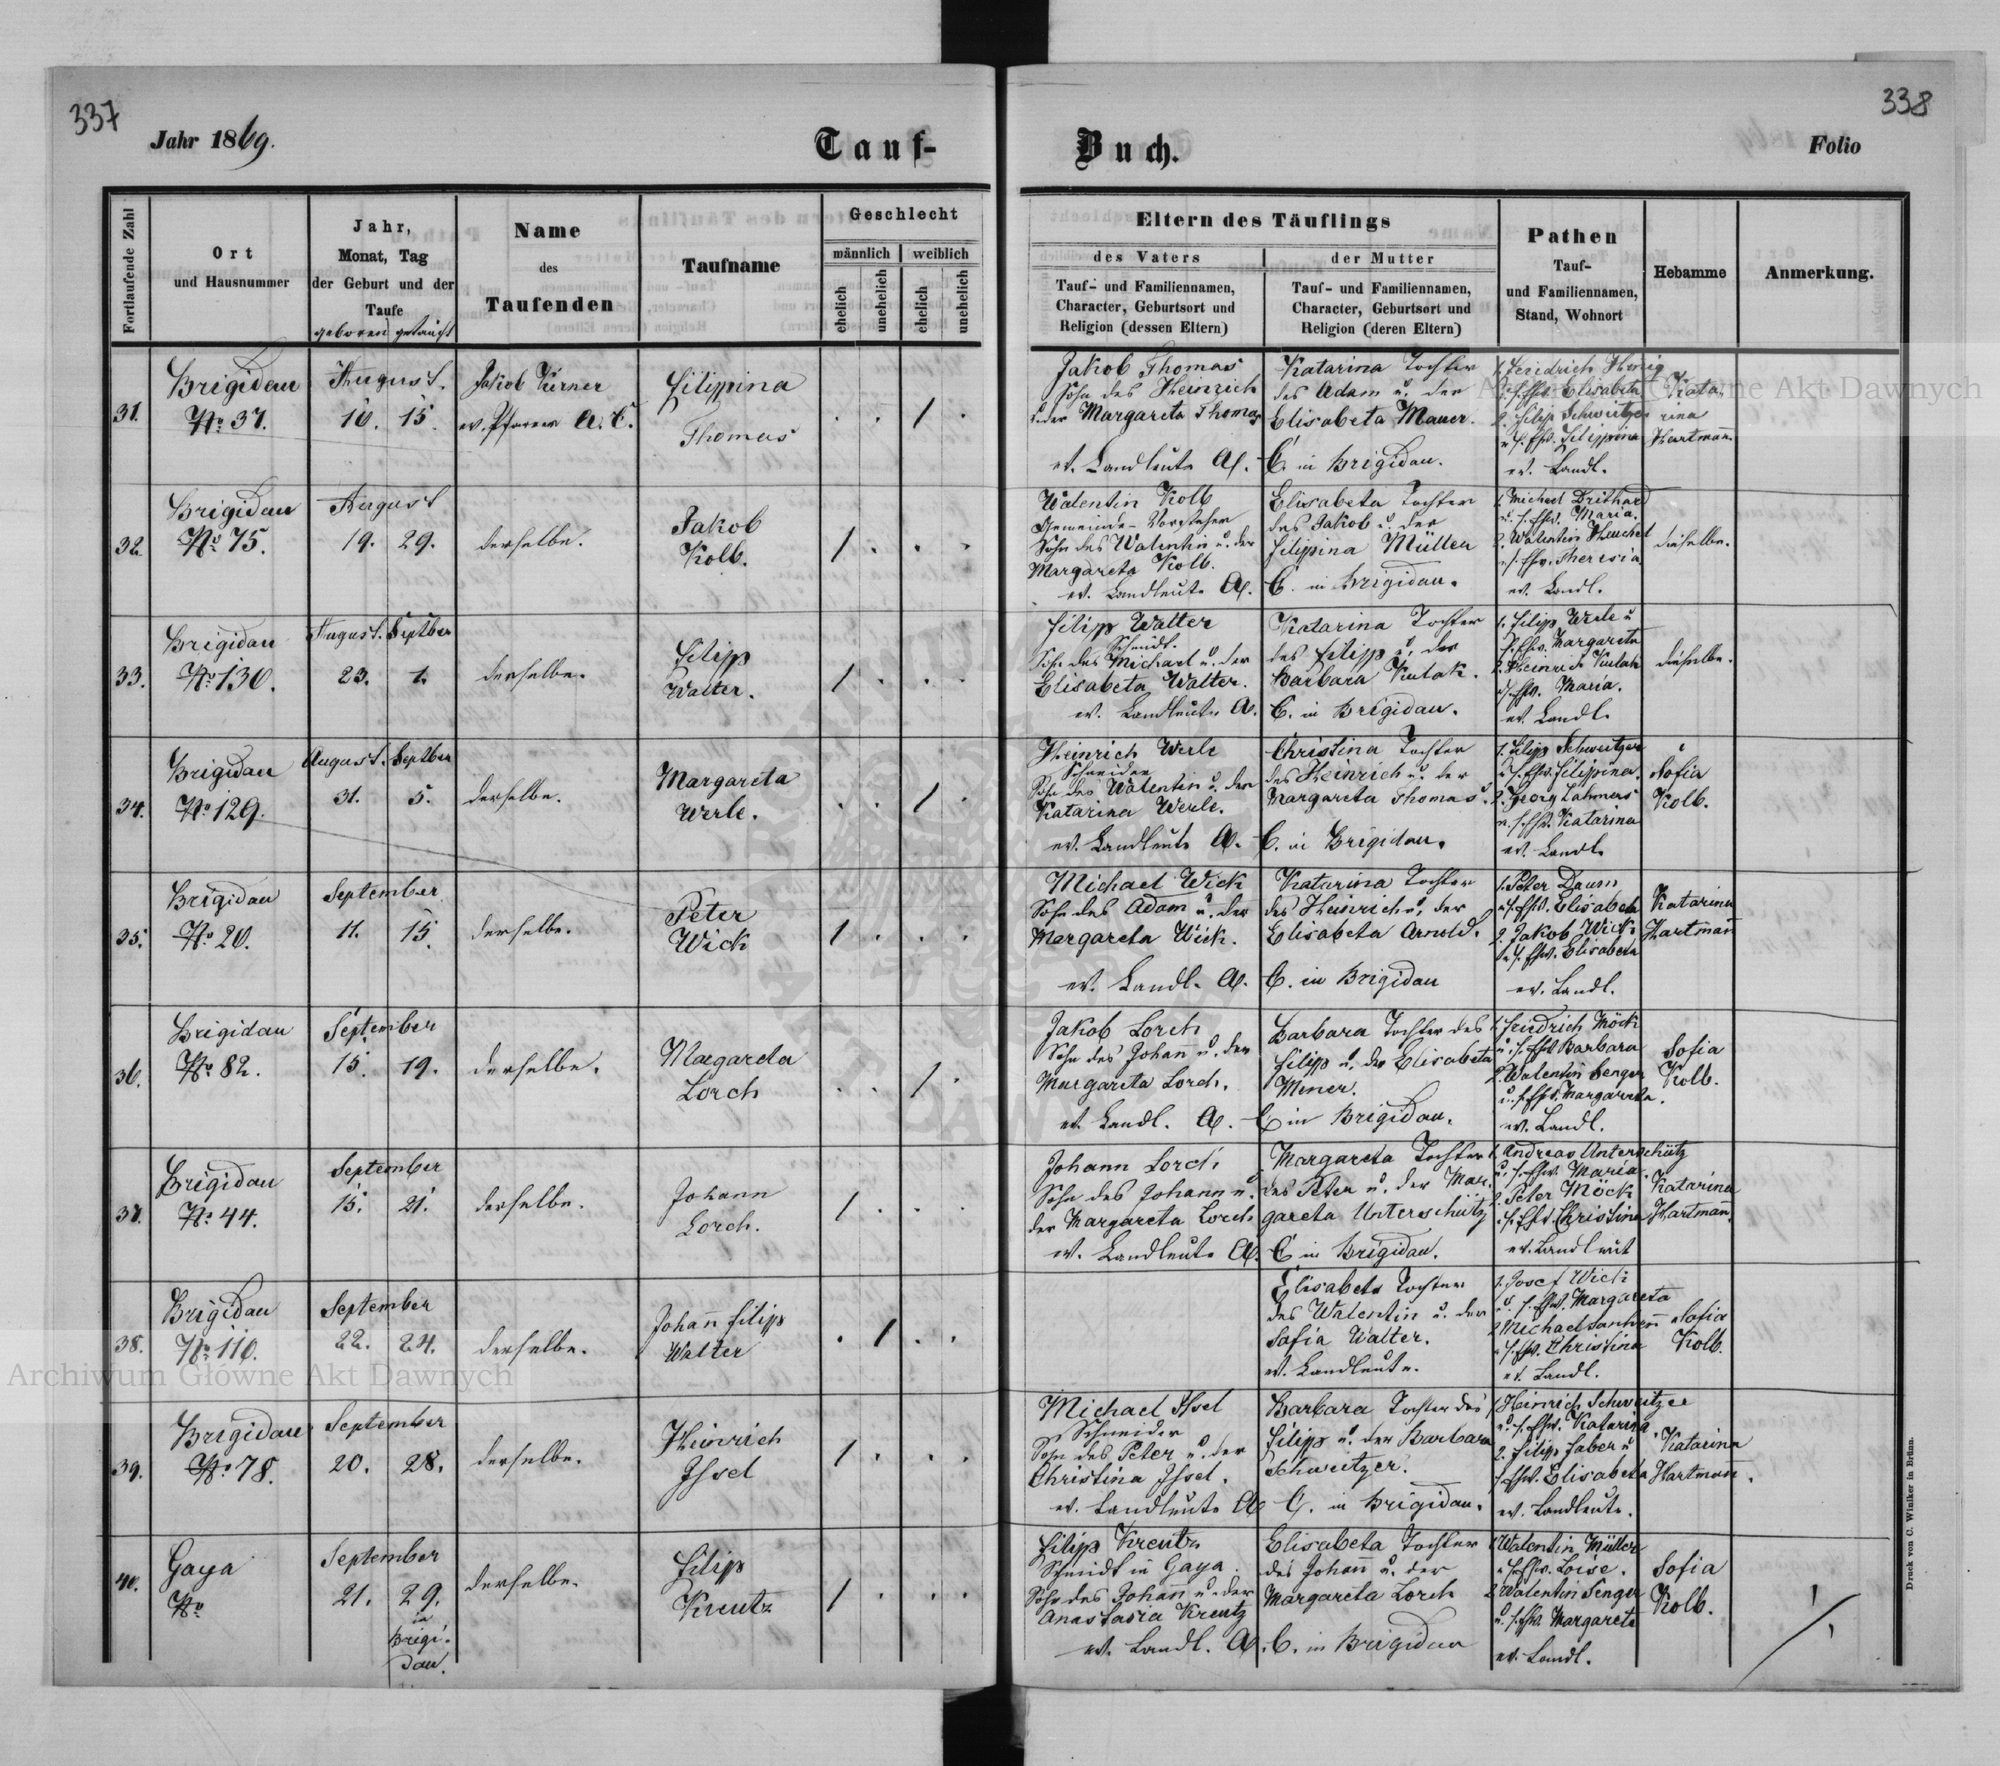 337
338
Jahr 1869.
Tauf-
Buch.
Folio
Fortlaufende Zahl
Ort
und Hausnummer
Jahr,
Monat, Tag
der Geburt und der
Taufe
geboren getauft
Name
des
Taufenden
Taufname
Geschlecht
männlich
weiblich
ehelich
unehelich
ehelich
unehelich
Eltern des Täuflings
des Vaters
Tauf- und Familiennamen,
Character, Geburtsort und
Religion (dessen Eltern)
der Mutter
Tauf- und Familiennamen,
Character, Geburtsort und
Religion (deren Eltern)
Pathen
Tauf-
und Familiennamen,
Stand, Wohnort
Hebamme
Anmerkung.
31.
Brigidau
No. 37.
August.
10. 15.
Jakob
ev. Pfarrer A. C.
Filippina
Thomas
Jakob Thomas
Sohn des Heinrich
u. der Margareta Thomas
ev. Landleute A.
Katarina Tochter
des Adam u. der
Elisabeta Mauer.
C. in Brigidau.
1. Friedrich
u. s. Ehw. Elisabeta
2. Filip Schweitzer
u. s. Ehw. Filippina
ev. Landl.
Kata-
rina
Hartmann.
32.
Brigidau
No. 75.
August
19. 29.
derselbe.
Jakob
Kolb.
Walentin Kolb
Gemeinde-Vorsteher
Sohn des Walentin u. der
Margareta Kolb.
ev. Landleute A.
Elisabeta Tochter
des Jakob u. der
Filippina Müller
C. in Brigidau.
1. Michael
u. s. Ehw. Maria.
2. Walentin
u. s. Ehw. Theresia
ev. Landl.
dieselbe.
33.
Brigidau
No. 130.
August. Septber
23. 1.
derselbe.
Filipp
Walter.
Filipp Walter
Schmidt.
Sohn des Michael u. der
Elisabeta Walter.
ev. Landleute A.
Katarina Tochter
des Filipp u. der
Barbara Kutak.
C. in Brigidau.
1. Filipp Werle u
s. Ehw. Margareta
2. Heinrich Kutak
u. s. Ehw. Maria.
ev. Landl.
dieselbe.
34.
Brigidau
No. 129.
August. Septber
31. 5.
derselbe.
Margareta
Werle.
Heinrich Werle
Schneider
Sohn des Walentin u. der
Katarina Werle.
ev. Landleute A.
Christina Tochter
des Heinrich u. der
Margareta Thomas.
C. in Brigidau.
1. Filipp Schweitzer
u. s. Ehw. Filippina.
2. Georg Lahmers
u. s. Ehw. Katarina
ev. Landl.
Sofia
Kolb.
35.
Brigidau
No. 20.
September
11. 15.
derselbe.
Peter
Wick
Michael Wick
Sohn des Adam u. der
Margareta Wick.
ev. Landl. A.
Katarina Tochter
des Heinrich u. der
Elisabeta Arnold.
C. in Brigidau
1. Peter Daum
u. s. Ehw. Elisabeta
2. Jakob Wick
u. s. Ehw. Elisabeta
ev. Landl.
Katarina
Hartmann
36.
Brigidau
No. 82.
September
15. 19.
derselbe.
Margareta
Lorch
Jakob Lorch
Sohn des Johann u. der
Margareta Lorch.
ev. Landl. A.
Barbara Tochter des
Filipp u. der Elisabeta
Miner.
C in Brigidau.
1. Friedrich Möck
u. s. Ehw. Barbara
2. Walentin Senger
u. s. Ehw. Margareta.
ev. Landl.
Sofia
Kolb.
37.
Brigidau
No. 44.
September
15. 21.
derselbe.
Johann
Lorch.
Johann Lorch
Sohn des Johann u.
der Margareta Lorch
ev. Landleute A.
Margareta Tochter
des Peter u. der Mar-
gareta Unterschütz
C in Brigidau.
1. Andreas Unterschütz
u. s. Ehw. Maria.
2. Peter Möck
u. s. Ehw. Christina
ev. Landleut
Katarina
Hartmann.
38.
Brigidau
No. 110.
September
22. 24.
derselbe.
Johann Filipp
Walter
Elisabeta Tochter
des Walentin u. der
Sofia Walter.
ev. Landleute.
1. Josef Wick
u. s. Ehw. Margareta
2. Michael
u. s. Ehw. Christina
ev. Landl.
Sofia
Kolb.
39.
Brigidau
No. 78.
September
20. 28.
derselbe.
Heinrich
Issel
Michael Issel
Schneider
Sohn des Peter u. der
Christina Issel.
ev. Landleute A
Barbara Tochter des
Filipp u. der Barbara
Schweitzer.
C. in Brigidau.
1. Heinrich Schweitzer
u. s. Ehw. Katarina.
2. Filipp Faber u
s. Ehw. Elisabeta
ev. Landleute.
Katarina
Hartmann.
40.
Gaya
No
September
21. 29.
in
Brigi-
dau.
derselbe.
Filipp
Kreutz
Filipp Kreutz
Schmidt in Gaya.
Sohn des Johann u. der
Anastasia Kreutz
ev. Landl. A.
Elisabeta Tochter
des Johann u. der
Margareta Lorch
C. in Brigidau
1. Walentin Müller
u. s. Ehw. Loise.
2. Walentin Senger
u. s. Ehw. Margareta
ev. Landl.
Sofia
Kolb.
Druck von C. Winiker in Brünn.
Archiwum Główne Akt Dawnych
Archiwum Główne Akt Dawnych